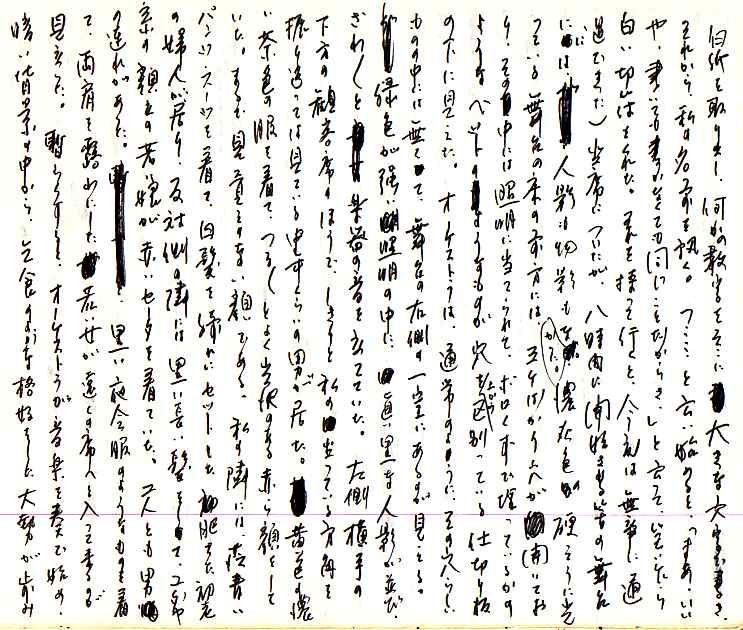 白紙を取り出し、何かの数字をそこに大きな文字で書き、
それから、私の名前を訊く。つ……と云い始めると、「まあ、いい
や、書いても書かなくても同じことだから」と云って、
白い切山はをくれた。それを持って行くと、今夜は無事に通
過できた）座席についたが、八時に開始される筈の舞台
には人影も物影もなかった。濃灰色の硬そうに光
っている舞台の床の前方には、五ケばかり穴が開いてお
り、その中には照明に当てられて、
ようなベットのようなものが穴を仕切り板
の下に見えた。オーケストラは、通常のように、その穴
ものの中には無くて、舞台の右側の一室にあるが見える。
緑色が強い照明の中に、真黒な人影が並び、
ざわざわと楽器の音を立てていた。左側横手の
下方の観客席のほうで、しきりと私の坐っている方角を
振り返っては見ている中年くらいの男が居た。黄色の濃
い茶色の服を着て、つるつるとよく光沢のある赤ら顔をして
いた。まるで見覚えのない顔である。私の隣には、薄青い
パンツ・スーツを着て、白髪を綺麗にセットした初老
の婦人が居り、反対側の隣には黒い長い髪をして、
顔立の若い娘が赤いセータを着ていた。二人とも男
の連れがあった。黒い夜会服のようなものを着
て、両肩を露わにした若い女が遠くの席へと入って来るが
見えた。暫くすると、オーケストラが音楽を奏で始め、
暗い背景の中から、乞食のような格好をした大勢が歩み